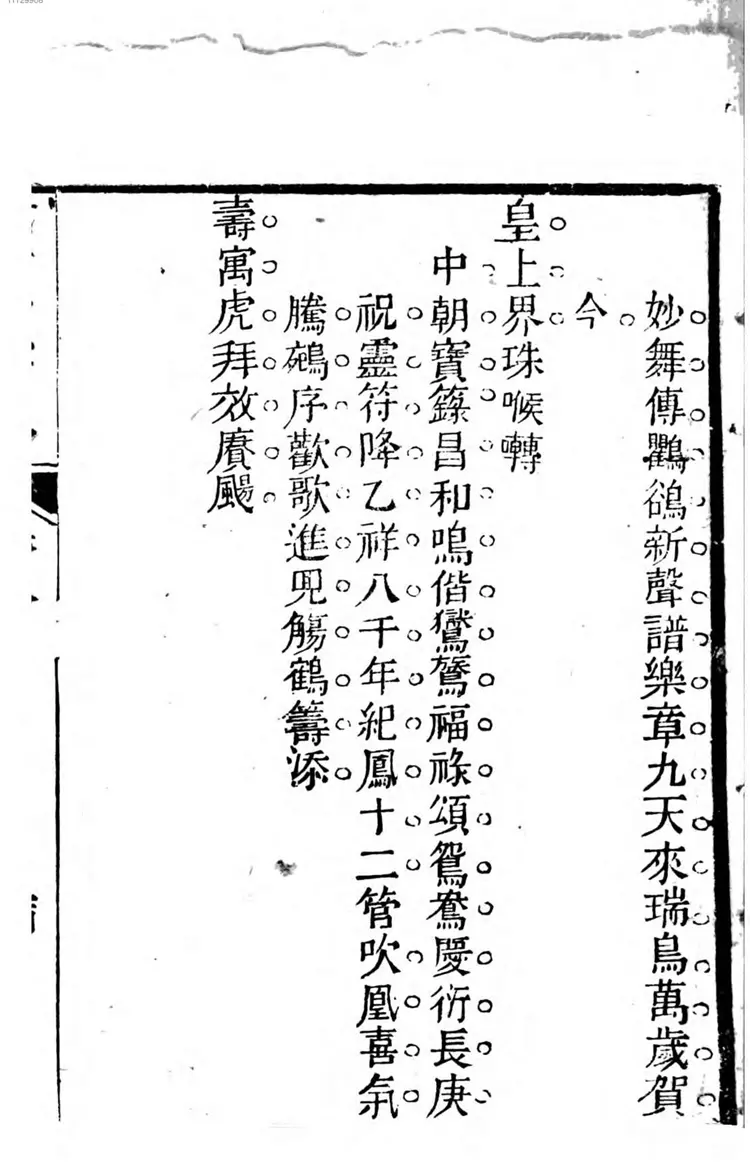 妙舞傳鸜鵒新聲譜樂章九天來瑞鳥萬歲賀
今
皇上界珠喉囀
中朝寶籙昌和鳴偕鸞鷟福祿頌鴛鴦慶衍長庚
祝靈符降乙祥八千年紀鳳十二管吹凰喜氣
騰鵷序歡歌進兕觴鶴籌添
壽寓虎拜效賡颺